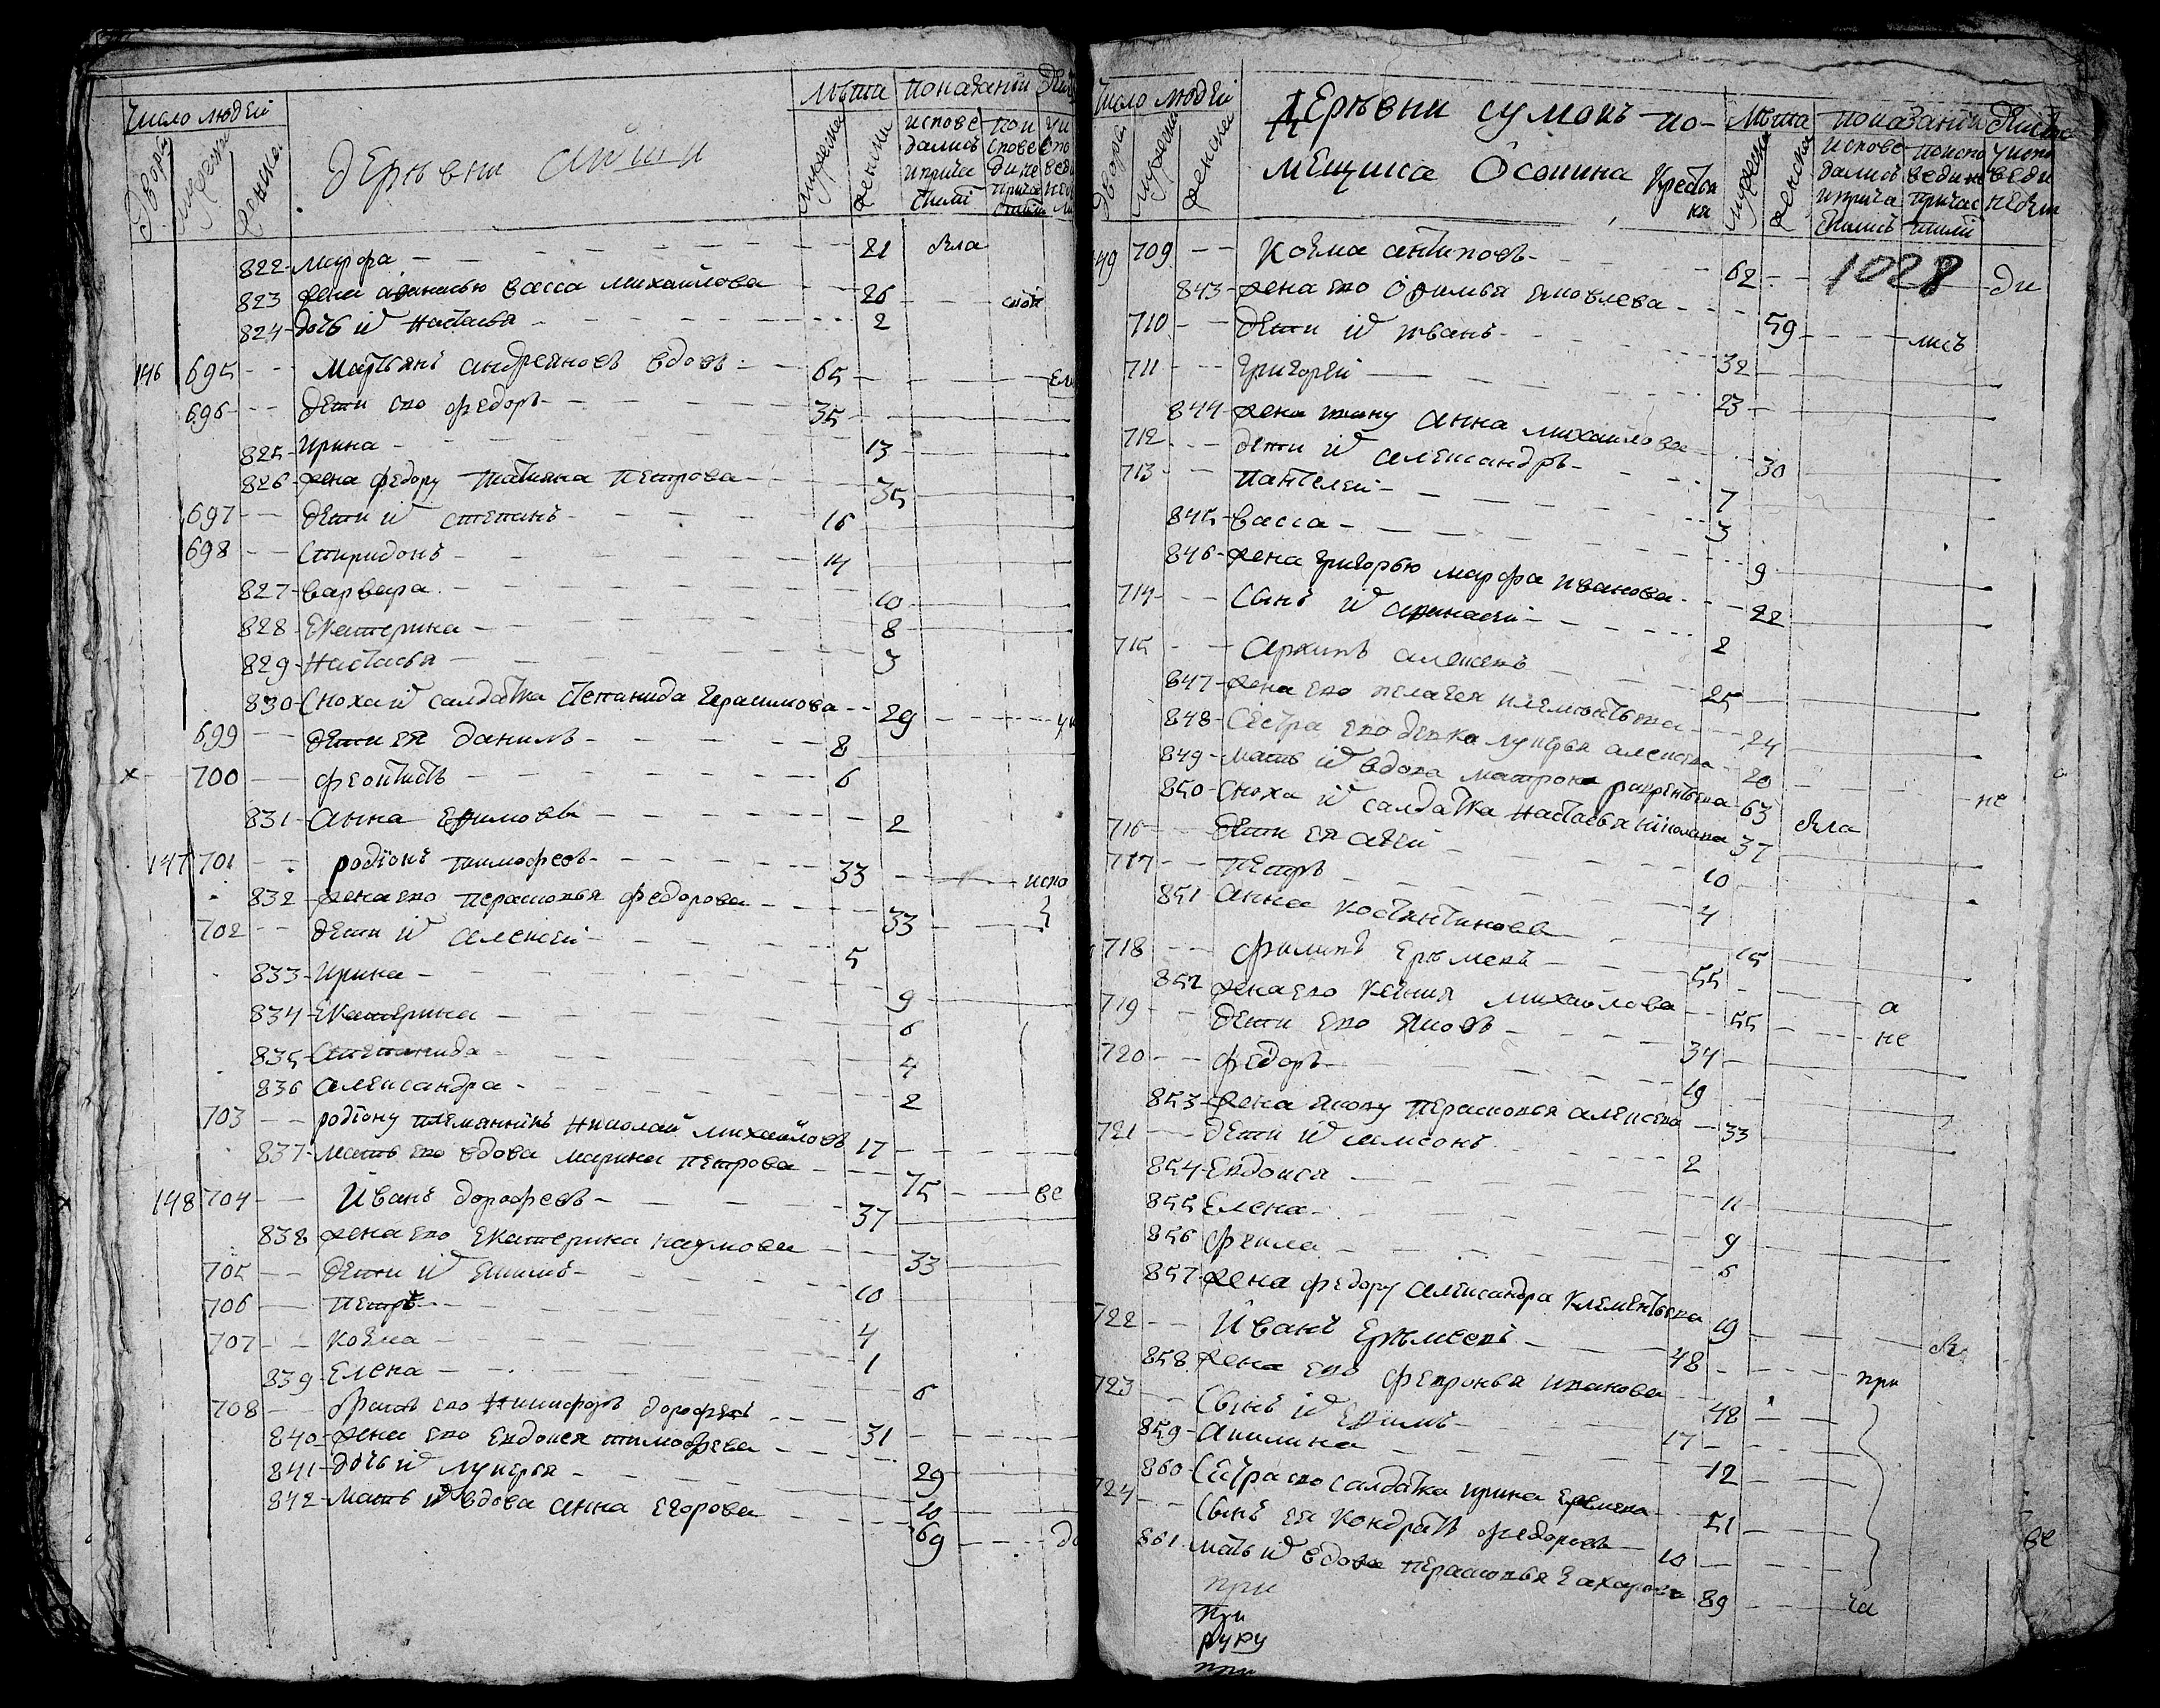 Число людей
Двори
мужеска
женска
деревни
Лѣта
мужеска
женски
показаниі
испове
дались
иприча
стилис
822 марфа 21
823 жена афанасью васса михаилова 26
824 дочь их настасья 2
146 695 мартьянъ андреяновъ вдовъ 65
696 дети ево федоръ 35
825 ирина 13
826 жена федору татияна петрова 35
697 дети их степанъ 16
698 спиридонъ 14
827 варвара 10
828 екатерина 8
829 настасья 3
830 сноха их салдатка степанида герасимова 29
699 дети ея данилъ 8
700 феоктистъ 6
831 анна ефимова 2
147 701 родіонъ тимофеевъ 33 испо
832 жена ево парасковья федорова 33
702 дети их алексей 5
833 ирина 9
834 екатерина 6
835 степанида 4
836 александра 2
703 родіону племянникъ николай михайловъ 17
837 мать ево вдова марина петрова 75 ве
148 704 иванъ дорофеевъ 37
838 жена ево екатерина наумова 33
705 дети их екимъ 10
706 петръ 4
707 козма 1
839 елена 6
708 братъ ево никифоръ дорофеевъ 31
840 жена ево евдокея тимофеева 29
841 дочь их лукерья 10
842 мать их вдова анна егорова 69
Число людей
двори
мужеска
женска
деревни сумокъ по-
мещика Осокина крестья
ня
Лѣта
мужеска
женска
показаниі
испове
дались
иприча
стились
149 709 козма антиповъ 62 1028 ди
843 жена ево офимья яковлева 59 лись
710 дети их иванъ 32
711 григорей 23
844 жена ивану анна михаилова 30
712 дети их александръ 7
713 пантелей 3
845 васса 9
846 жена григорью марфа иванова 22
714 сынъ их афанасей 2
715 архипъ алексеевъ 25
847 жена ево пелагея клементьева 24
848 сестра ево девка лукерья алексеева 20
849 мать их вдова матрона лаврентьева 63 не
850 сноха их салдатка настасья николаева 37 была
716 дети ея авѣй 10
717 петръ 4
851 анна костянтинова 15
718 филипъ еремеевъ 55
852 жена ево ксения михайлова 55 а
719 дети ево яковъ 34 не
720 федоръ 19
853 жена якову парасковья алексеева 33
721 дети их самсонъ 2
854 евдокия 11
855 елена 9
856 фекла 6
857 жена федору александра клементьева 19
722 иванъ еремеевъ 48
858 жена ево февронья иванова 48 при
723 сынъ их ефимъ 17
859 акилина 12
860 сестра ево салдатка ирина еремеева 51
724 сынъ ея кондратъ федоровъ 10
861 мать их вдова парасковья захарова 89 ча
при
при
руку
при